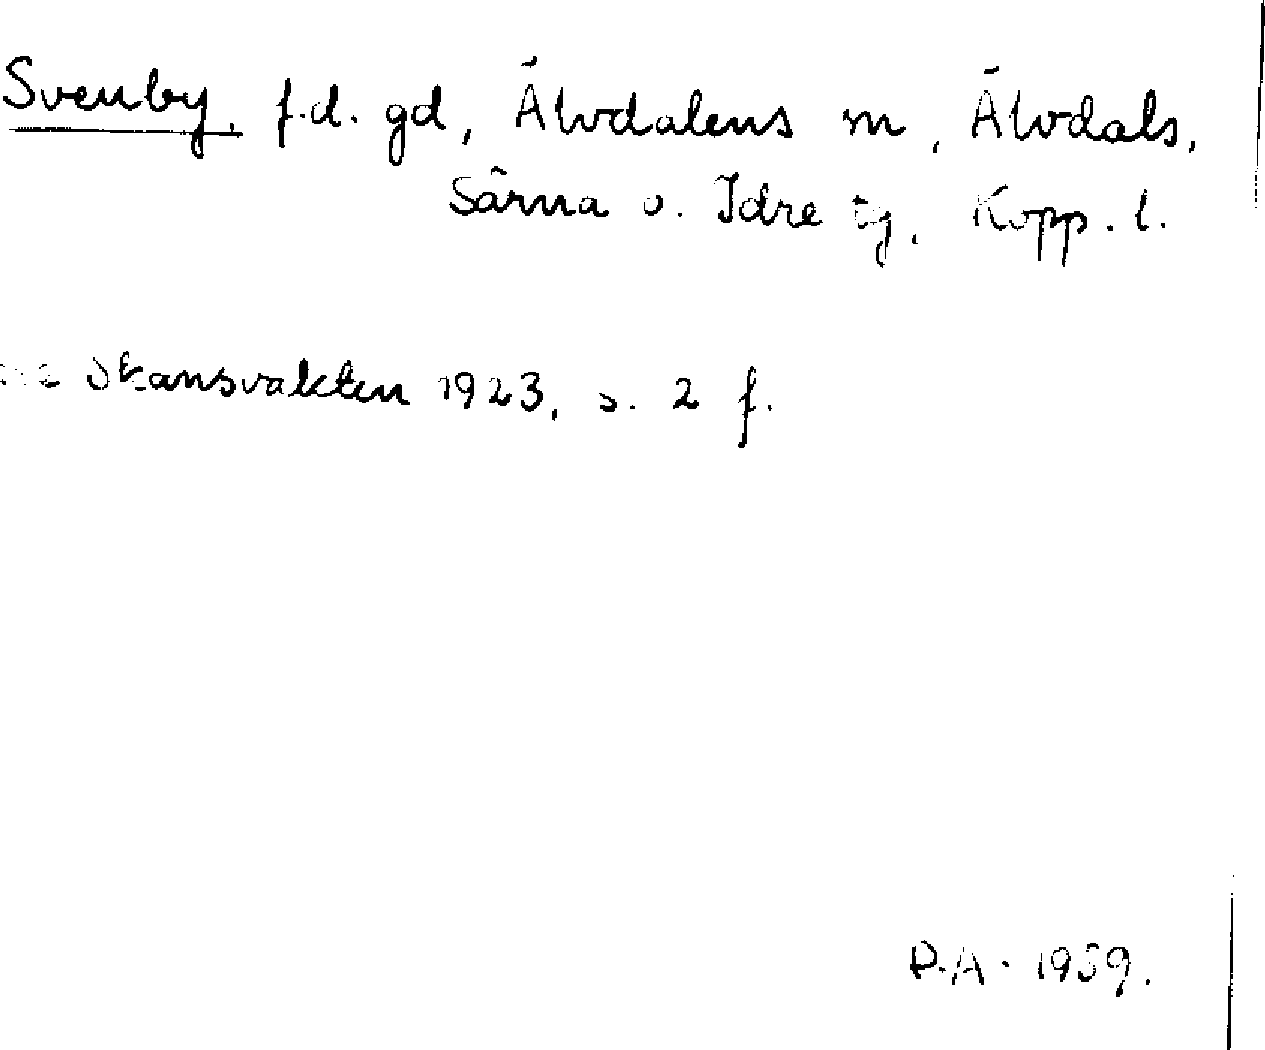 Svenby, f.d. gd, Älvdalens m, Älvdals,
Särna o. Idre tg, Kopp. l.
se Skansvakten 1923, s. 2 f.
P.A. 1939.